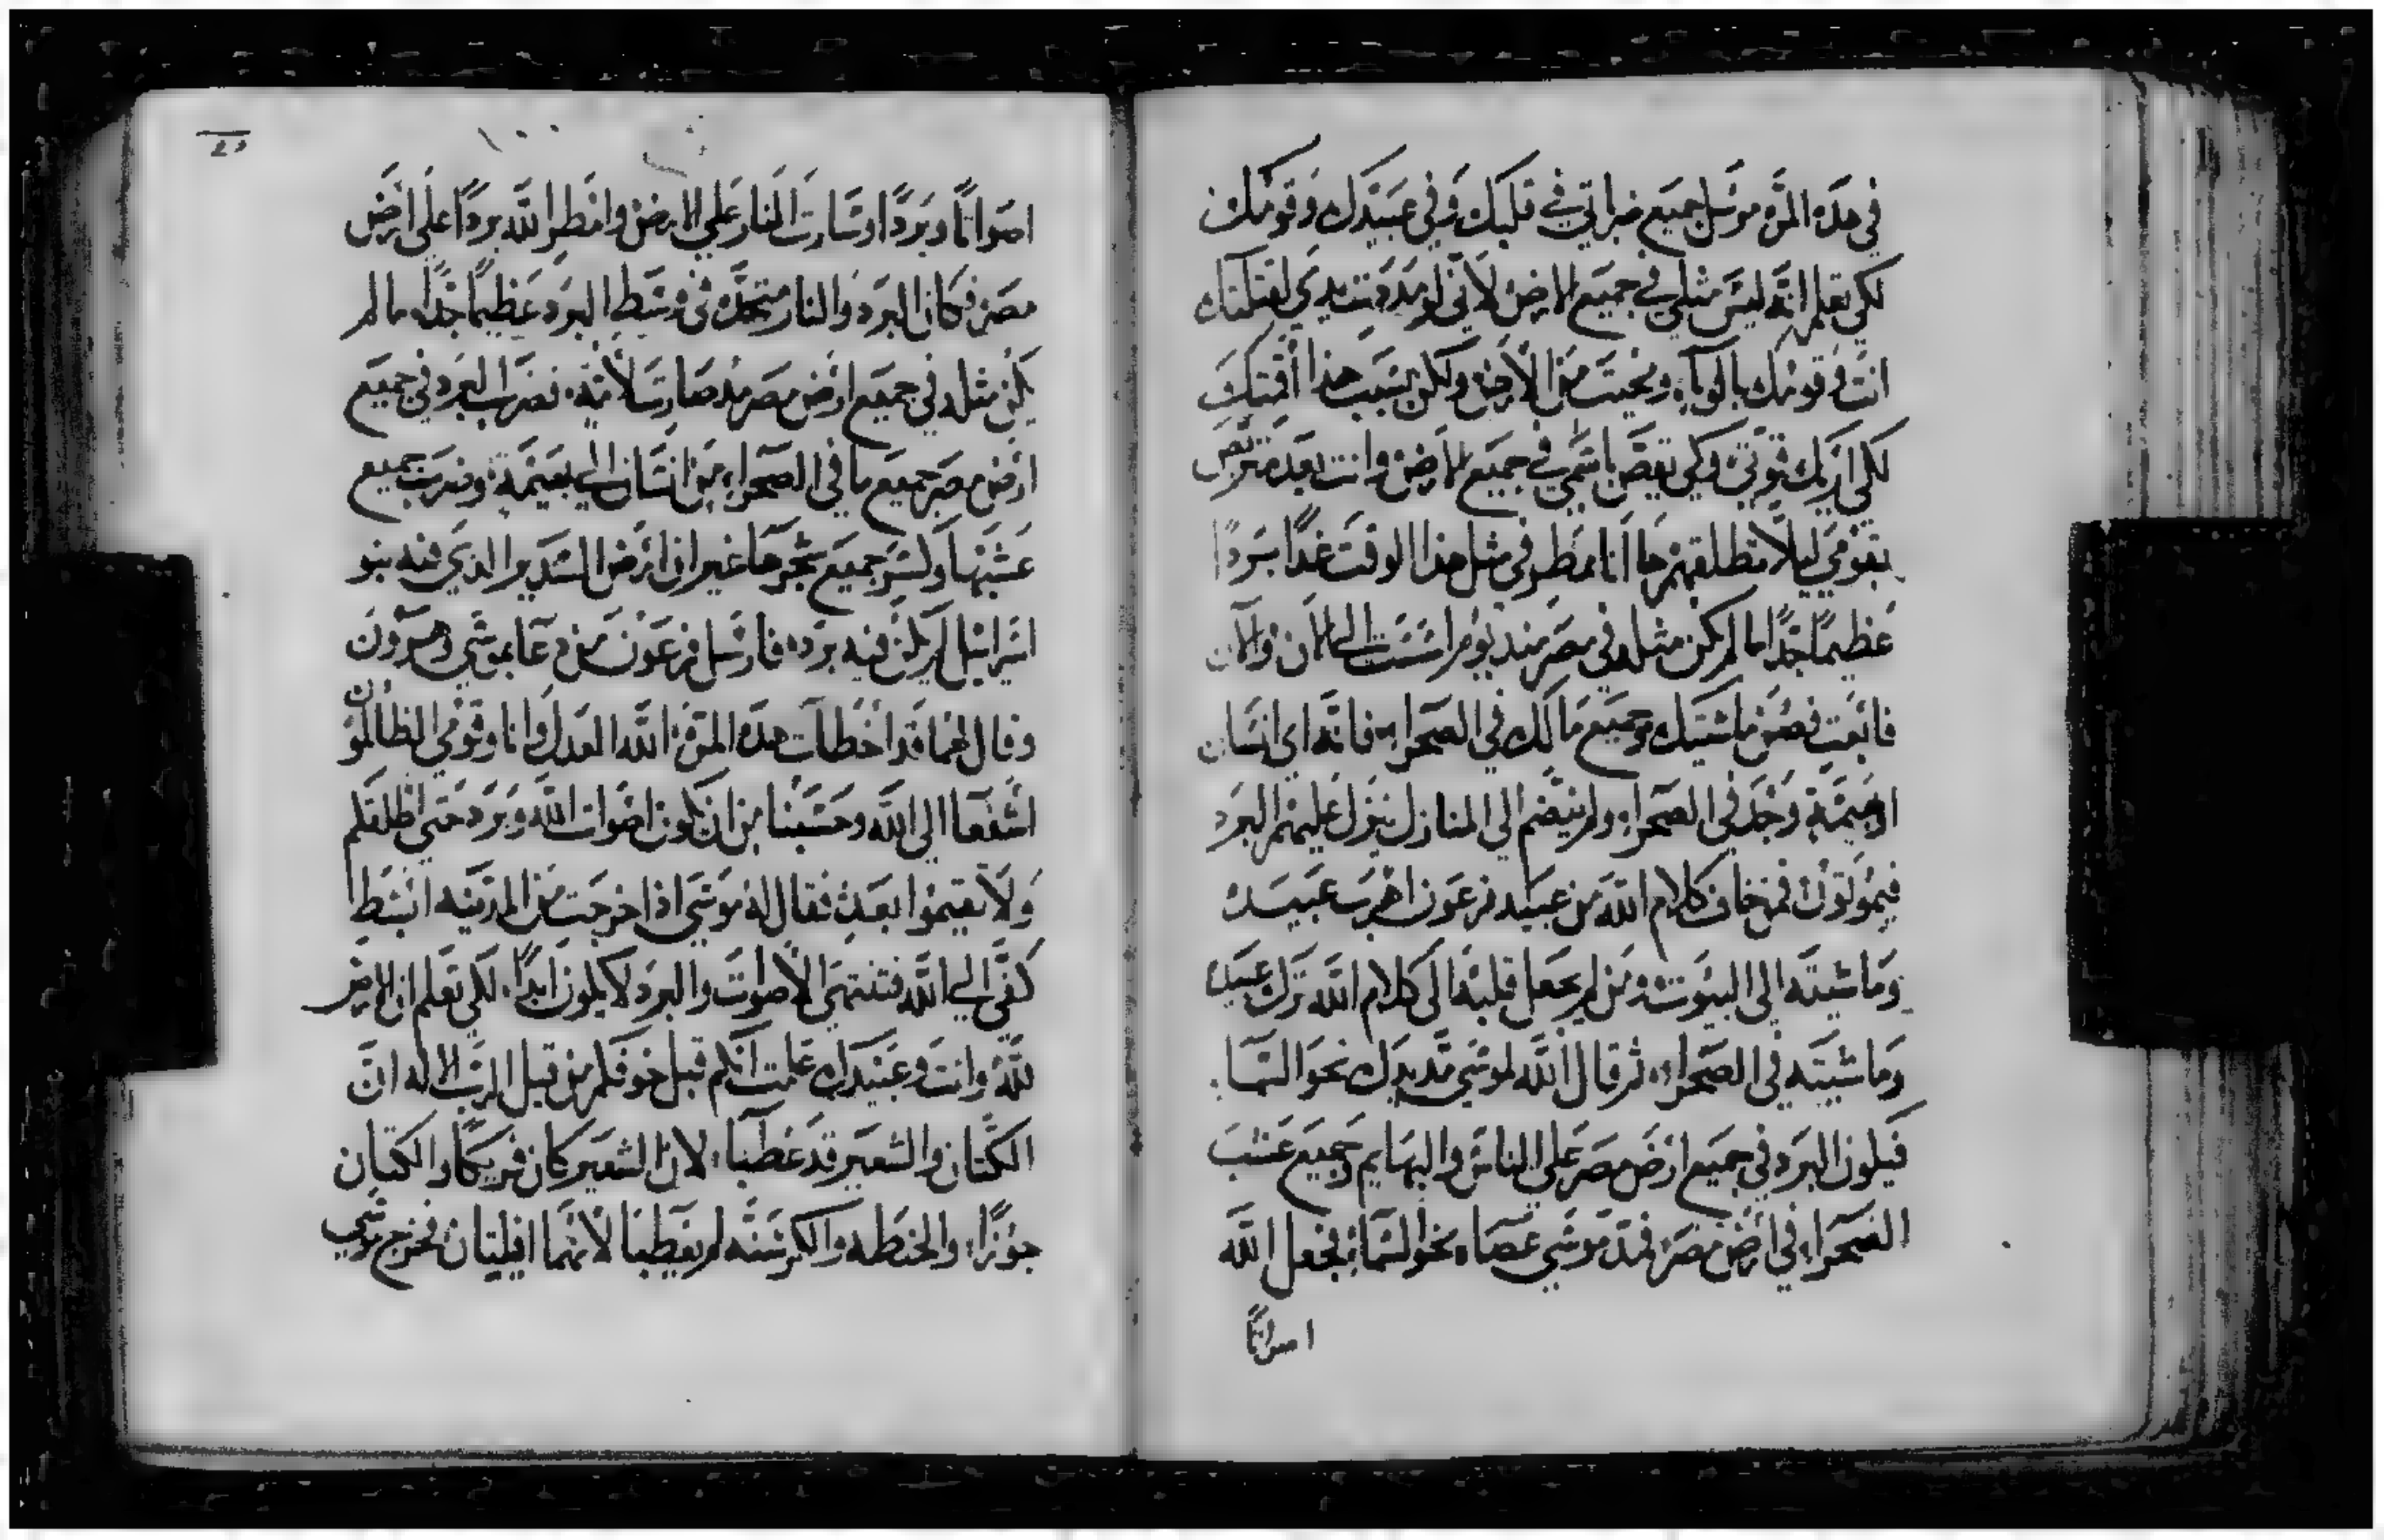 في هذه المرة مرسل جميع ضرباتي في قلبك وفي عبيدك وقومك
لكي تعلم انه ليس مثلي في جميع الارض لاني لو مددت يدي لقتلتك
انت وقومك بالوباء ومحيت من الارض ولكن بسبب هذا اقمتك
لكي اريك قوتي وكي تقص باسمي في جميع الارض وانت بعد متربص
بقومي ليلا تطلقهم ها انا ممطر في مثل هذا الوقت غدا بردا
عظيما جدا ما لم يكن مثله في مصر منذ يوم اسست الى الان والان
فابعث فصن ماشيتك وجميع مالك في الصحراء فانه اي انسان
او بهيمة وجد في الصحراء ولم ينضم الى المنازل ينزل عليهم البرد
فيموتون فمن خاف كلام الله من عبيد فرعون اهرب عبيده
وماشيته الى البيوت ومن لم يجعل قلبه الى كلام الله ترك عبيده
وماشيته في الصحراء ثم قال الله لموسى مد يدك نحو السماء
فيكون البرد في جميع ارض مصر على الناس والبهايم وجميع عشب
الصحراء في ارض مصر فمد موسى عصاه نحو السماء فجعل الله
اصواتا
اصواتا وبردا وسارت النار على الارض وامطر الله بردا على ارض
مصر فكان البرد والنار متحده في وسط البرد عظيما جدا ما لم
يكن مثله في جميع ارض مصر مذ صارت لامة فضرب البرد في جميع
ارض مصر جميع ما في الصحراء من انسان الى بهيمة وضرب جميع
عشبها وكسر جميع شجرها غير ان ارض السدير الذي فيه بنو
اسرائيل لم يكن فيه برد فارسل فرعون من دعا بموسي وهرون
وقال لهما قد اخطات هذه المرة الله العدل وانا وقومي الظالمون
اشفعا الى الله وحسبنا من ان تكون اصوات الله وبرد حتى اطلقكم
ولا تقيموا بعد فقال له موسى اذا خرجت من المدينه ابسط
كفي الى الله فتنتهي الاصوات والبرد لا يكون ابدا لكي تعلم ان الارض
لله وانت وعبيدك علمت انكم قبل خوفكم من قبل الرب الاله ان
الكتان والشعير قد عطبا لان الشعير كان فريكا والكتان
جوزا والحنطه والكرسنه لم يعطبا لانهما افيليتان فخرج موسي